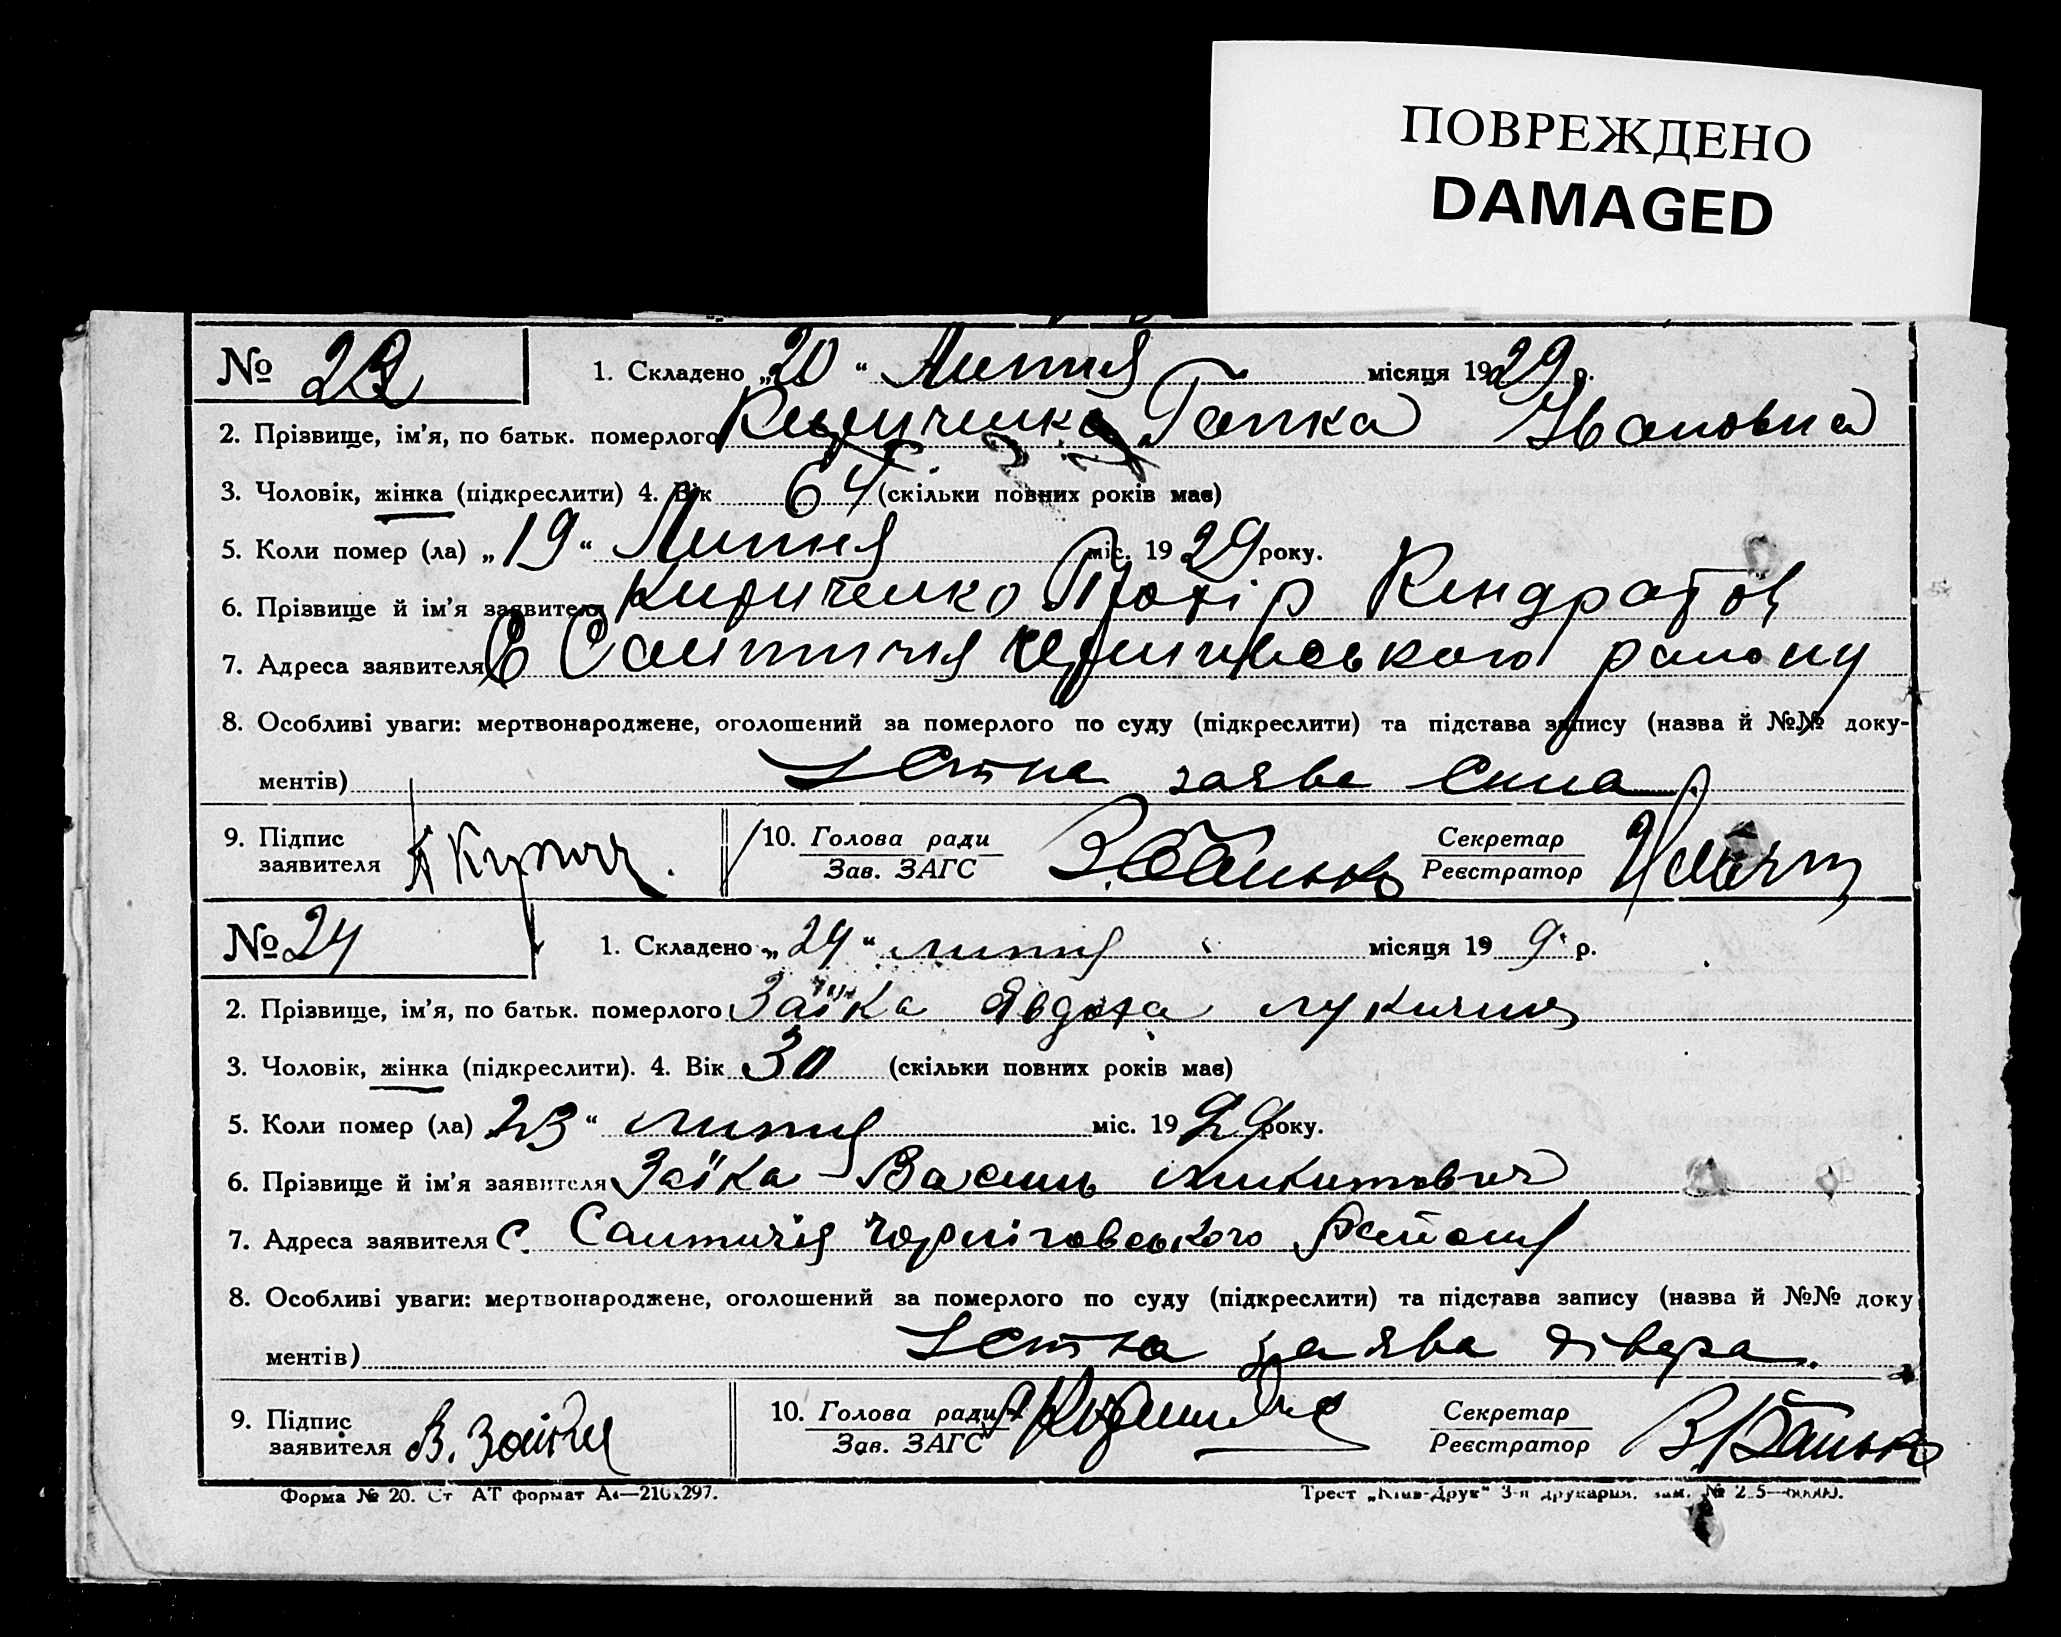 ПОВРЕЖДЕНО
DAMAGED
№ 1. Складено „20“ Липня місяця 1929 р.
2. Прізвище, ім'я, по батьк. померлого Кириченко Гапка Ивановна
3. Чоловік, жінка (підкреслити) 4. Вік 64 (скільки повних років має)
5. Коли помер (ла) „19“ Липня міс. 1929 року.
6. Прізвище й ім'я заявителя Кириченко Прохір Кендратов
7. Адреса заявителя С Салтичія району
8. Особливі уваги: мертвонароджене, оголошений за померлого по суду (підкреслити) та підстава запису (назва й №№ доку-
ментів) Устна заява сина.
9. Підпис заявителя 10. Голова ради Зав. ЗАГС Секретар Реєстратор
№ 24 1. Складено „24“ липня місяця 19 9 р.
2. Прізвище, ім'я, по батьк. померлого Заїка Явдоха лукична
3. Чоловік, жінка (підкреслити). 4. Вік 30 (скільки повних років має)
5. Коли помер (ла) 23“ липня міс. 1929 року.
6. Прізвище й ім'я заявителя Заїка Василь Микитович
7. Адреса заявителя С. Салтичія Чорніговського району
8. Особливі уваги: мертвонароджене, оголошений за померлого по суду (підкреслити) та підстава запису (назва й №№ доку
ментів) Устна заява дівера.
9. Підпис заявителя В. Заїка 10. Голова ради Зав. ЗАГС Секретар Реєстратор
Форма № 20. Ст АТ формат А4—210x297. Трест „Київ-Друк“ 3-я друкарня. зам. №